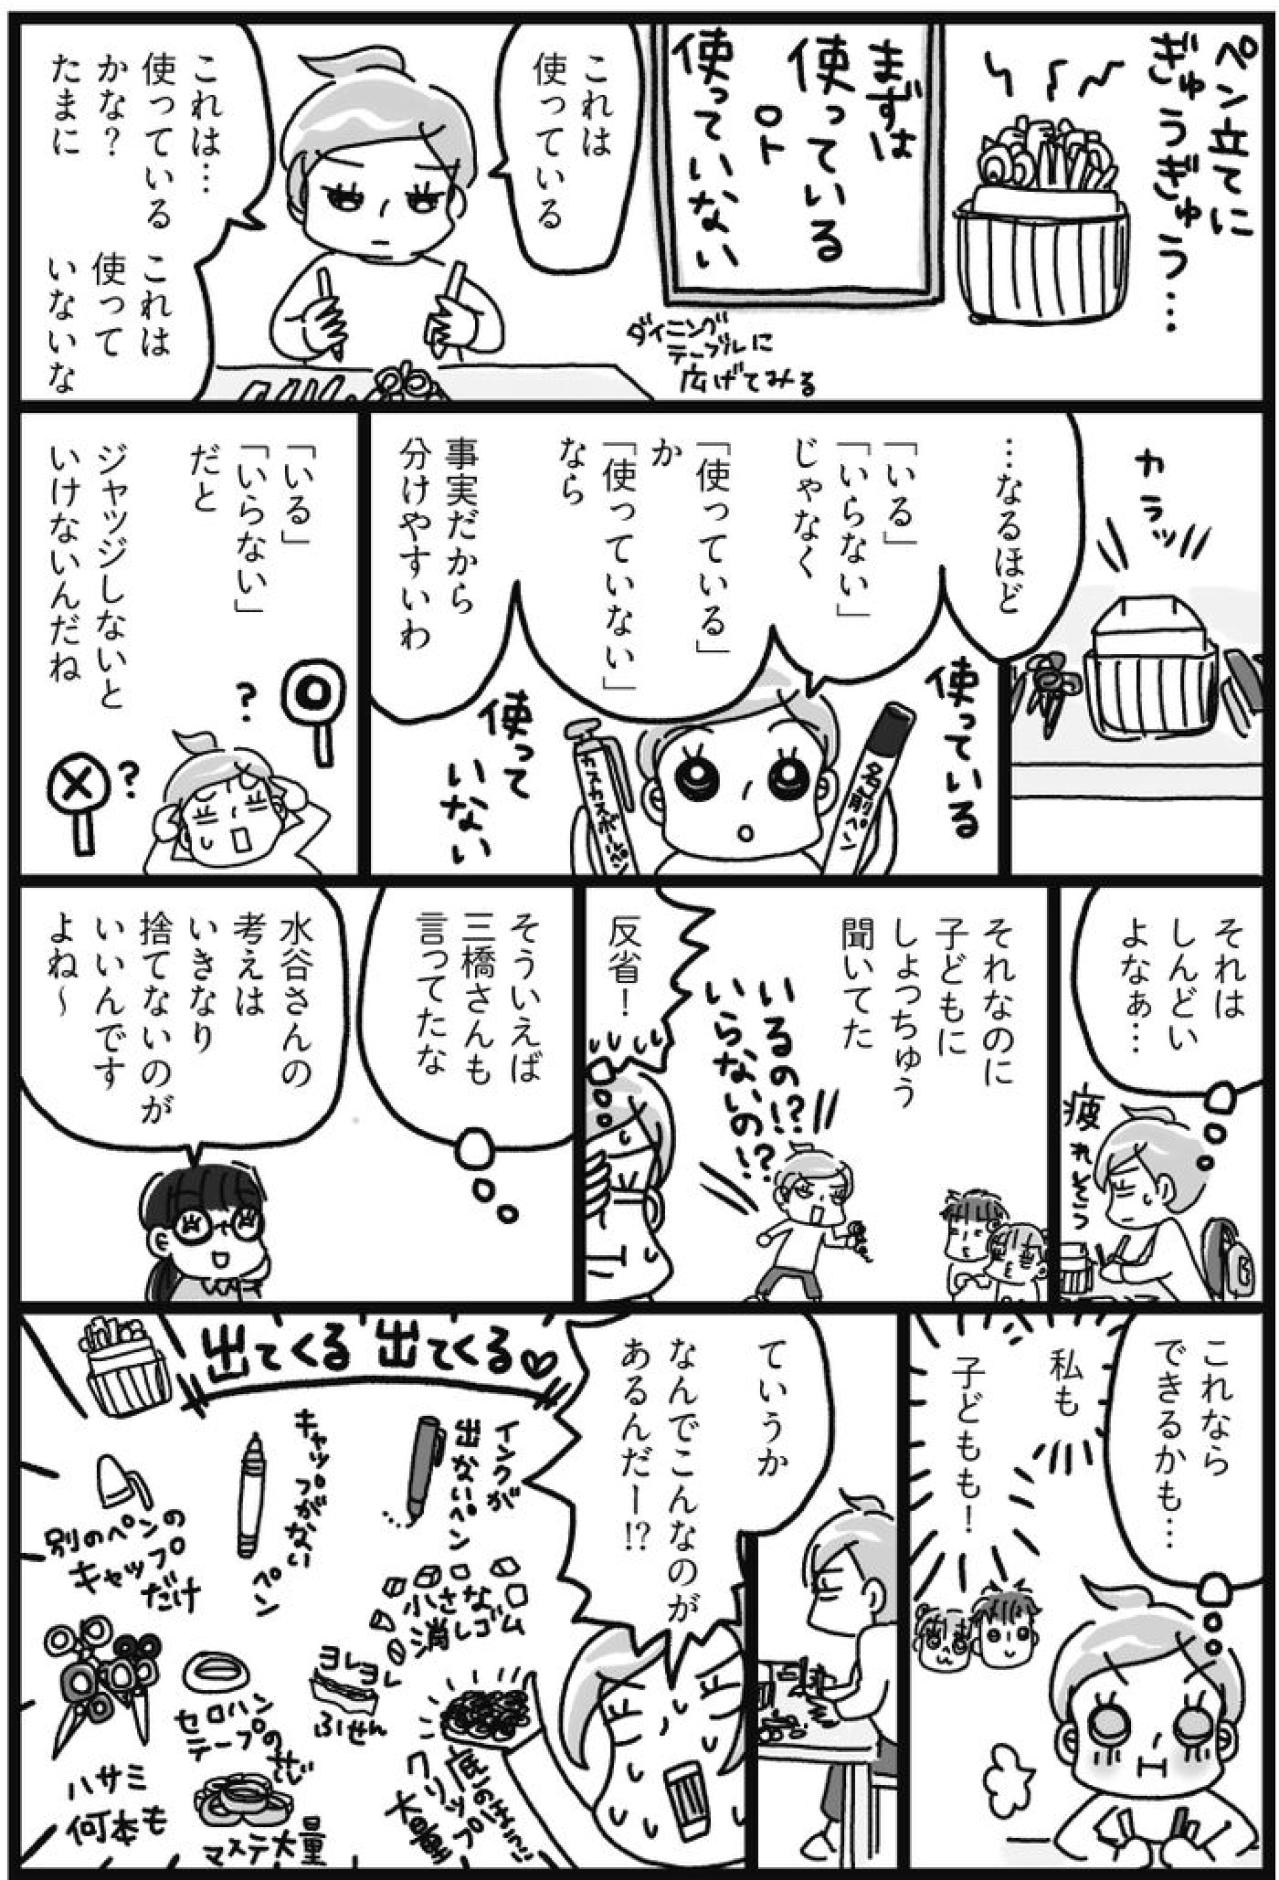 ペン立てに
ぎゅうぎゅう…
まずは
使っている
or
使っていない
ダイニング
テーブルに
広げてみる
これは
使っている
これは…
使っている
かな?
たまに
これは
使って
いないな
カラッ
…なるほど
「いる」
「いらない」
じゃなく
「使っている」
か
「使っていない」
なら
事実だから
分けやすいわ
使っている
名前ペン
使って
いない
カスカスボールペン
「いる」
「いらない」
だと
ジャッジしないと
いけないんだね
?
?
それは
しんどい
よなぁ…
疲れそう
それなのに
子どもに
しょっちゅう
聞いてた
いるの!?
いらないの!?
反省!
そういえば
三橋さんも
言ってたな
水谷さんの
考えは
いきなり
捨てないのが
いいんです
よね〜
これなら
できるかも…
私も
子どもも!
ていうか
なんでこんなのが
あるんだー!?
出てくる出てくる♡
インクが
出ないペン
キャップがない
ペン
別のペンの
キャップ
だけ
小さな
消しゴム
ヨレヨレ
ふせん
セロハン
テープの芯
ハサミ
何本も
マステ大量
底のほうに
クリップ
大量